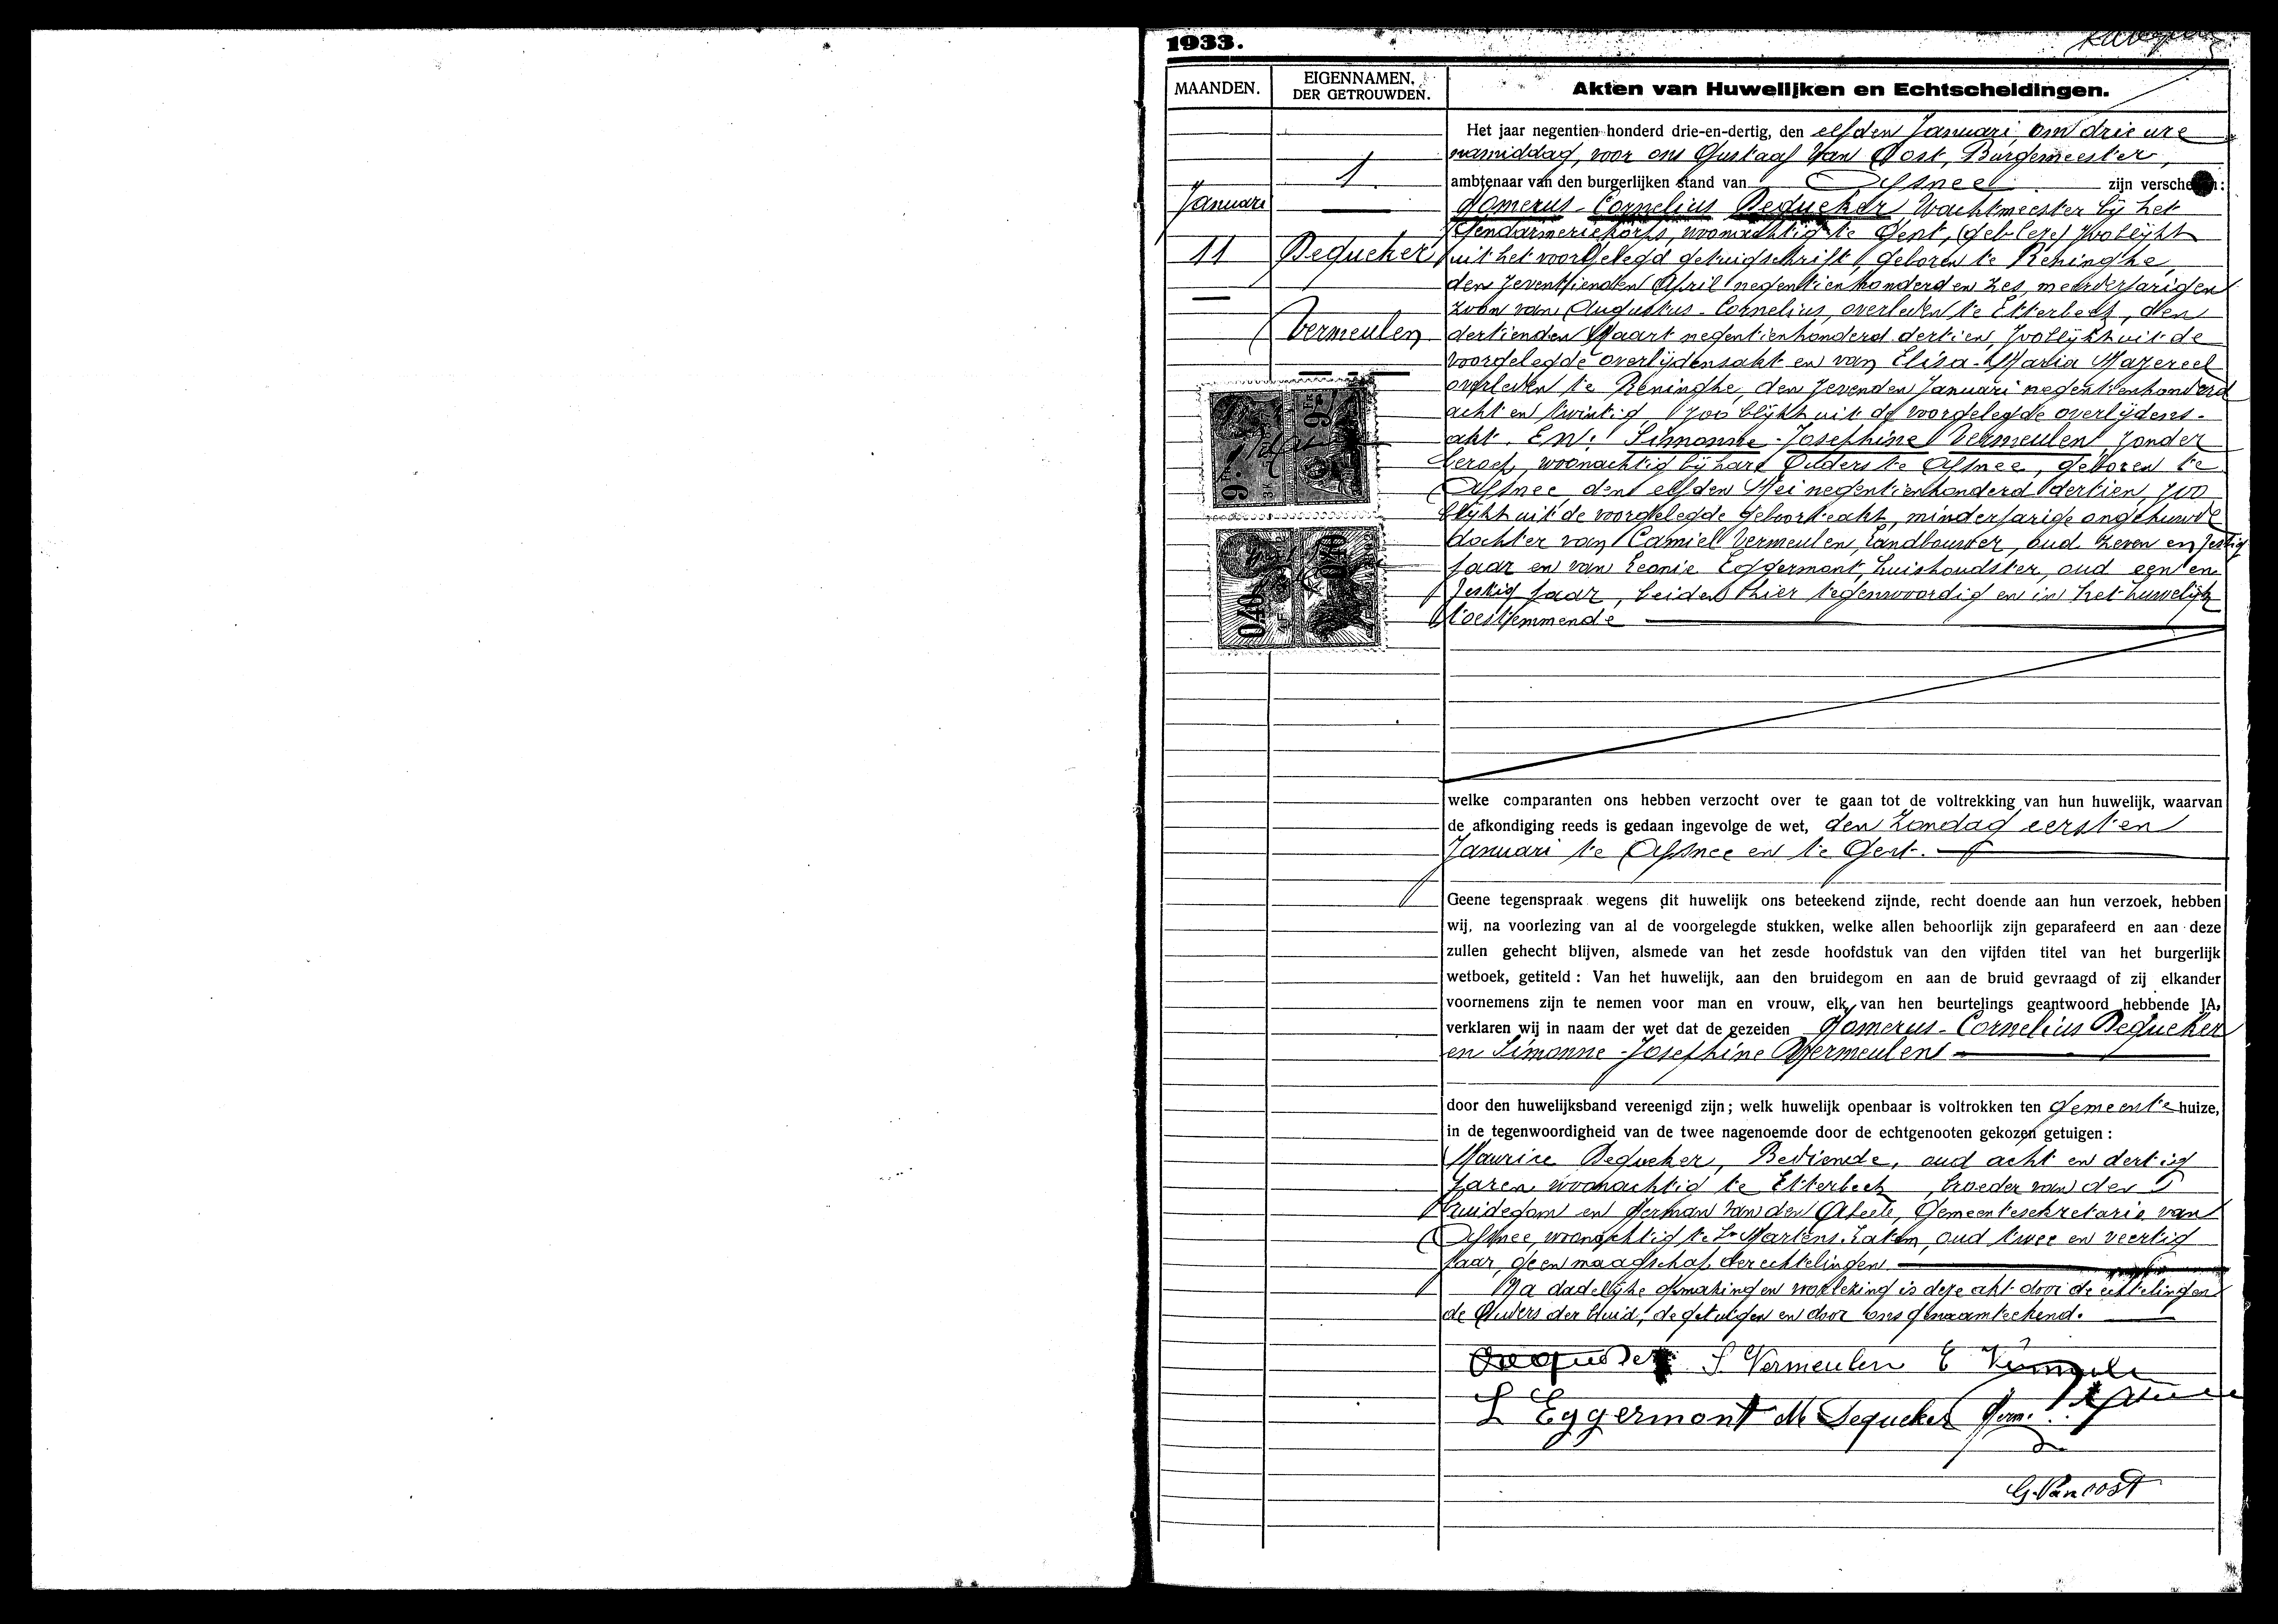 1933.
MAANDEN.
EIGENNAMEN.
DER GETROUWDEN.
Akten van Huwelijken en Echtscheidingen.
1
Januari
11
Dequeker
Vermeulen
Het jaar negentien honderd drie-en-dertig, den elfden Januari om drie ure
namiddag, voor ons Gustaaf Van Oost, Burgemeester,
ambtenaar van den burgerlijken stand van Afsnee zijn verschenen:
Homerus-Cornelius Dequeker, Wachtmeester bij het
Gendarmeriekorps, woonachtig te Gent, zoo blijkt
uit het voorgelegd getuigschrift, geboren te Reninghe,
den zeventienden April negentienhonderd en zes, meerderjarigen
zoon van Augustus-Cornelius, overleden te Etterbeek, den
dertienden Maart negentienhonderd dertien, zoo blijkt uit de
voorgelegde overlijdensakt en van Elisa-Maria Mazereel
overleden te Reninghe, den zevenden Januari negentienhonderd
acht en twintig, zoo blijkt uit de voorgelegde overlijdens-
akt. En: Simonne-Josephine Vermeulen, zonder
beroep, woonachtig bij hare Ouders te Afsnee, geboren te
Afsnee, den elfden Mei negentienhonderd dertien, zoo
blijkt uit de voorgelegde geboorteakt, minderjarige ongehuwde
dochter van Camiel Vermeulen, Landbouwer, oud zeven en zestig
jaar en van Leonie Eggermont, huishoudster, oud een en
zestig jaar, beiden hier tegenwoordig en in het huwelijk
toestemmende
9 Fr
9 Fr
0,40
0,40
welke comparanten ons hebben verzocht over te gaan tot de voltrekking van hun huwelijk, waarvan
de afkondiging reeds is gedaan ingevolge de wet, den Zondag eersten
Januari te Afsnee en te Gent.
Geene tegenspraak wegens dit huwelijk ons beteekend zijnde, recht doende aan hun verzoek, hebben
wij, na voorlezing van al de voorgelegde stukken, welke allen behoorlijk zijn geparafeerd en aan deze
zullen gehecht blijven, alsmede van het zesde hoofdstuk van den vijfden titel van het burgerlijk
wetboek, getiteld : Van het huwelijk, aan den bruidegom en aan de bruid gevraagd of zij elkander
voornemens zijn te nemen voor man en vrouw, elk van hen beurtelings geantwoord hebbende JA,
verklaren wij in naam der wet dat de gezeiden Homerus-Cornelius Dequeker
en Simonne-Josephine Vermeulen
door den huwelijksband vereenigd zijn ; welk huwelijk openbaar is voltrokken ten gemeente huize,
in de tegenwoordigheid van de twee nagenoemde door de echtgenooten gekozen getuigen :
Maurice Dequeker, Bediende, oud acht en dertig
jaren woonachtig te Etterbeek, broeder van den
bruidegom en Herman Van den Abeele, Gemeentesekretaris van
Afsnee, woonachtig te St Martens Latem, oud twee en veertig
jaar, geen maagschap der echtelingen
Na dadelijke opmaking en voorlezing is deze akt door de echtelingen
de Ouders der bruid, de getuigen en door ons genaamteekend.
Dequeker S Vermeulen C Vermeulen
L Eggermont M Dequeker Herm.
G. Van oost